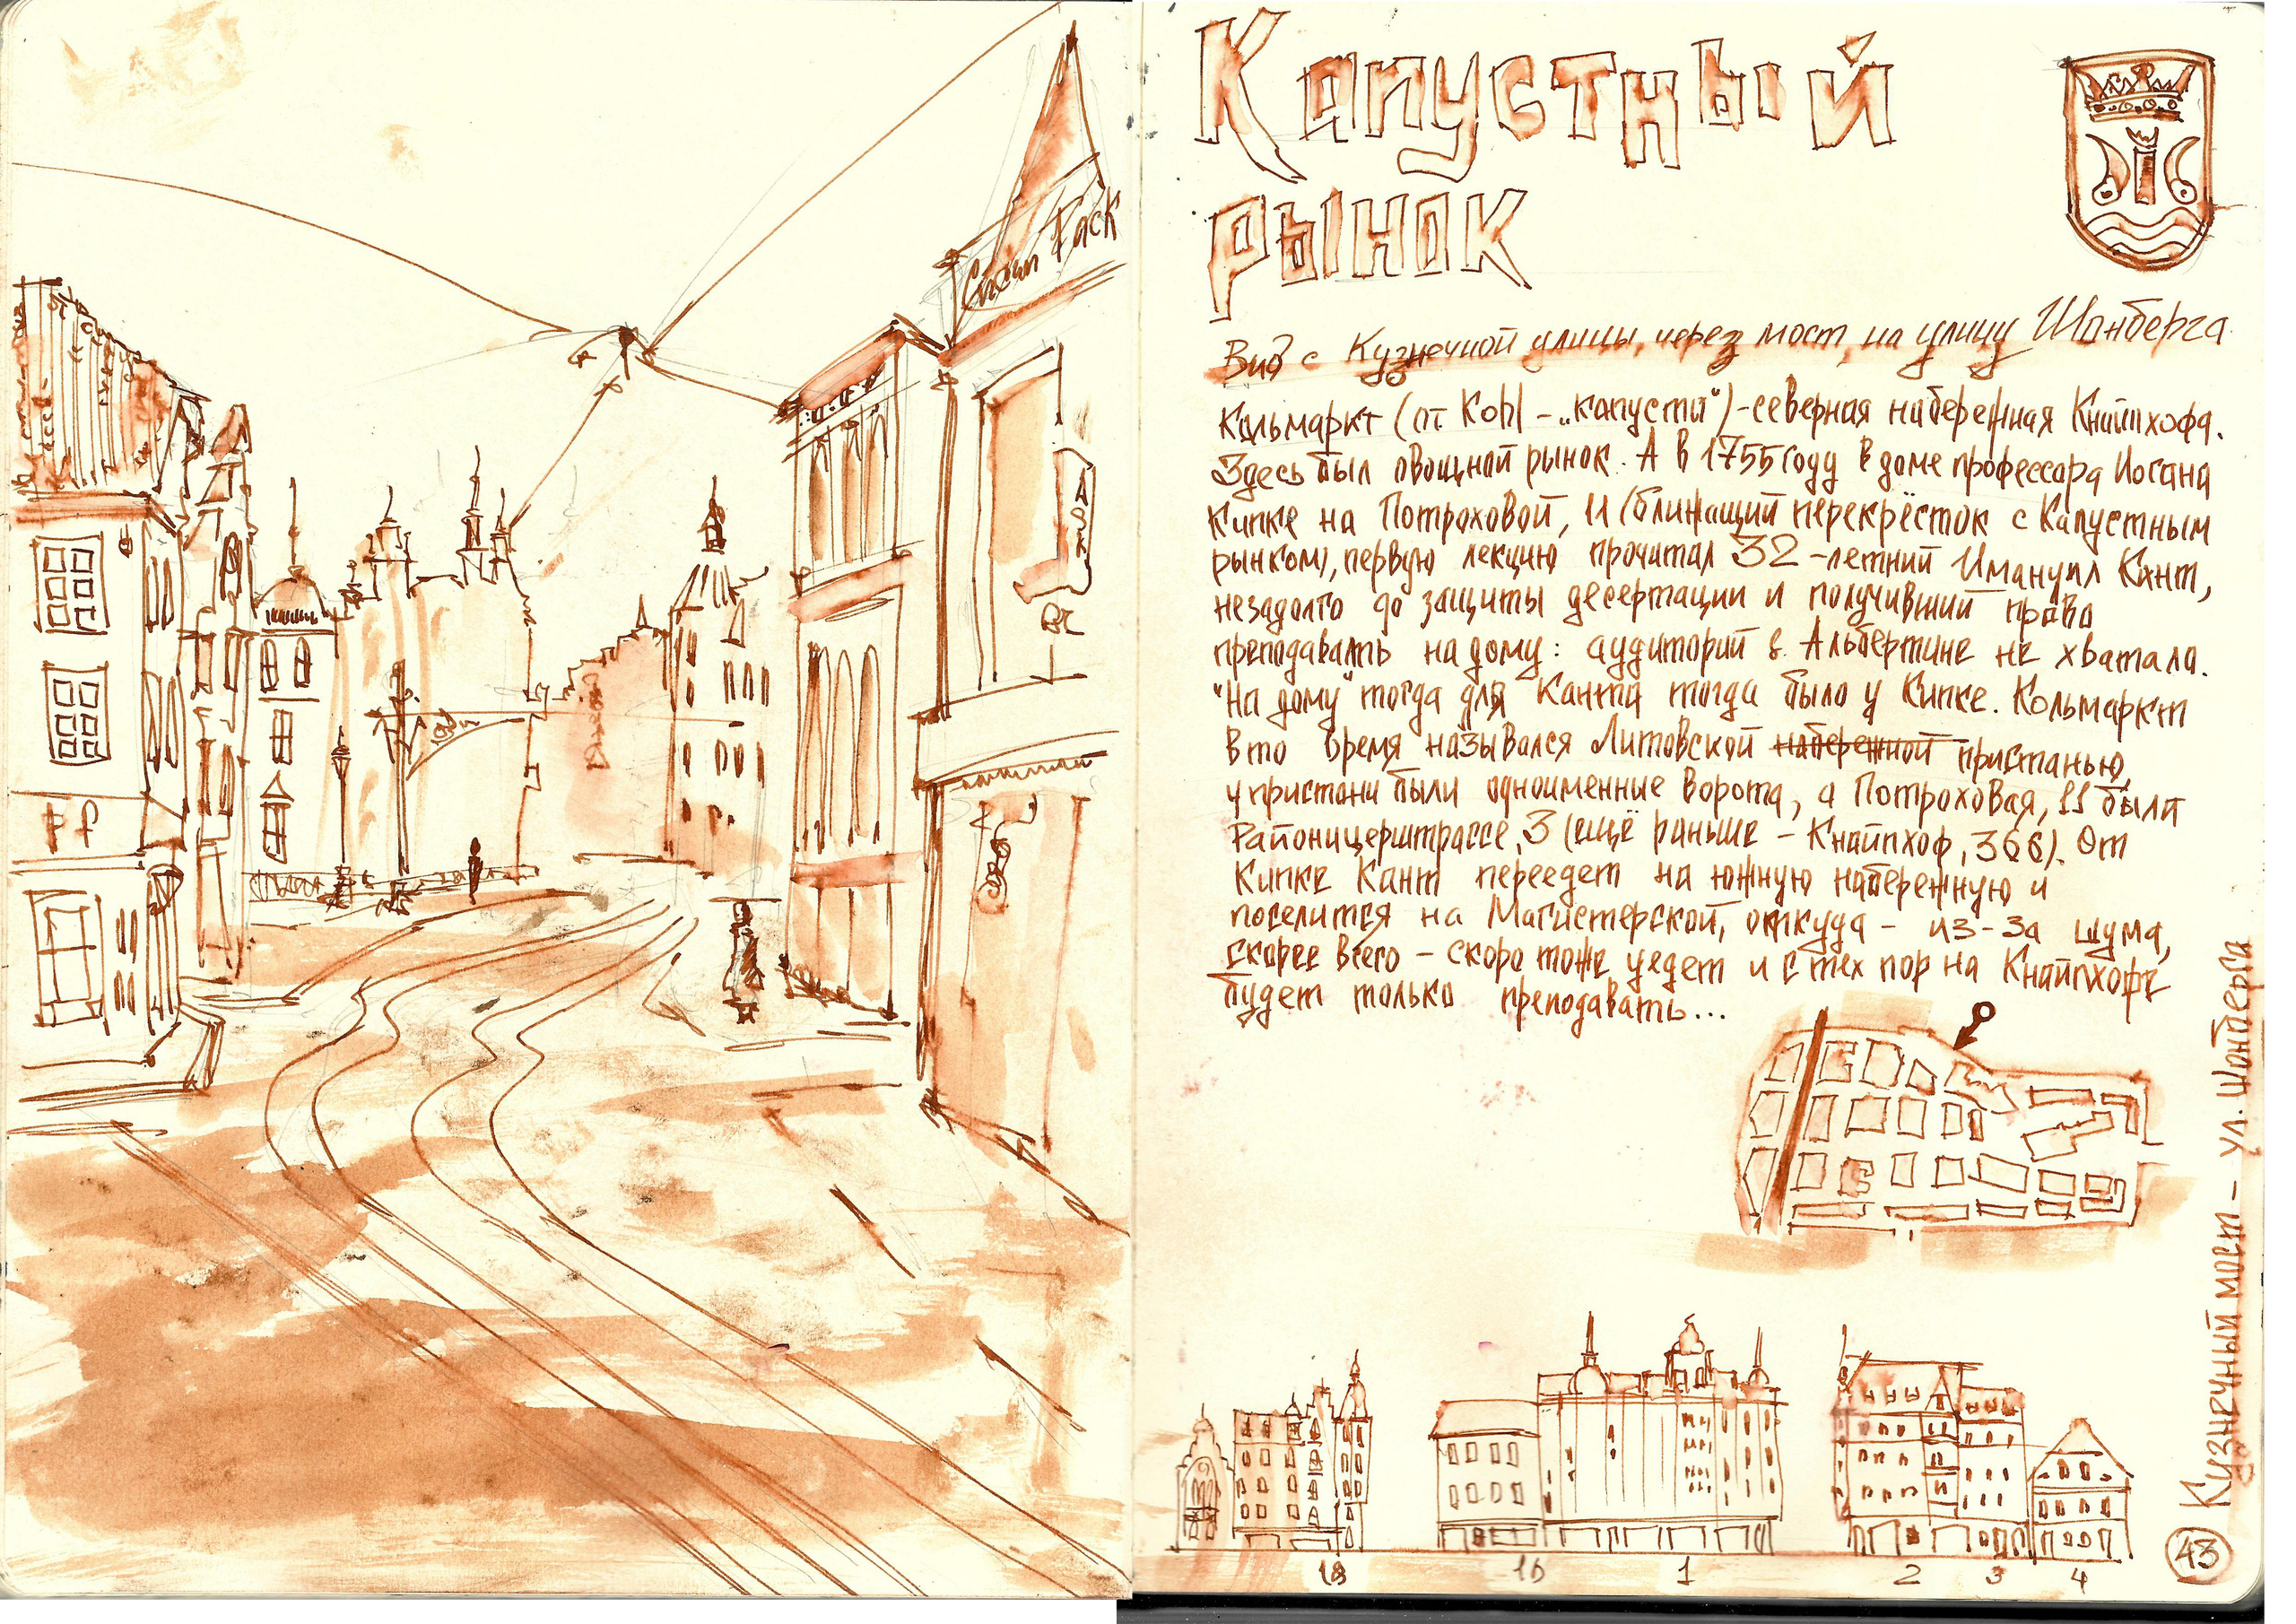 Капустный
рынок
Вид с Кузнечной улицы, через мост, на улицу Шонберга
Кольмаркт (от Kohl - „капуста“) - северная набережная Кнайпхофа.
Здесь был овощной рынок. А в 1755 году в доме профессора Иогана
Кипке на Потроховой, 11 (ближащий перекрёсток с Капустным
рынком), первую лекцию прочитал 32-летний Имануил Кант,
незадолго до защиты десертации и получивший право
преподавать на дому: аудиторий в Альбертине не хватало.
"На дому" тогда для Канта тогда было у Кипке. Кольмаркт
в то время назывался Литовской набережной пристанью,
у пристани были одноименные ворота, а Потроховая, 11 была
Районицерштрассе, 3 (ещё раньше - Кнайпхоф, 366). От
Кипке Кант переедет на южную набережную и
поселится на Магистерской, откуда - из-за шума,
скорее всего - скоро тоже уедет и с тех пор на Кнайпхофе
будет только преподавать...
Кузнечный мост - ул. Шонберга
18 16 1 2 3 4
43